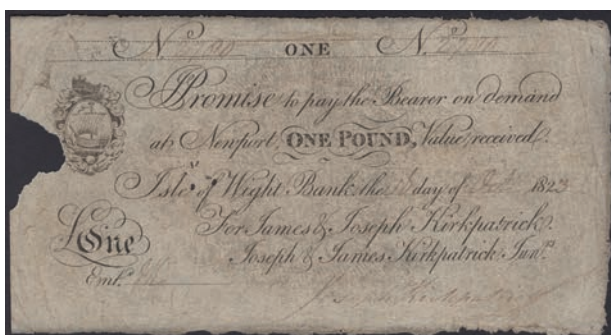 No. ONE No.
I Promise to pay the Bearer on demand
at Newport, ONE POUND, Value received.
Isle of Wight Bank the day of 1823
For James & Joseph Kirkpatrick.
£One Joseph & James Kirkpatrick Junrs.
Entd.
Joseph Kirkpatrick